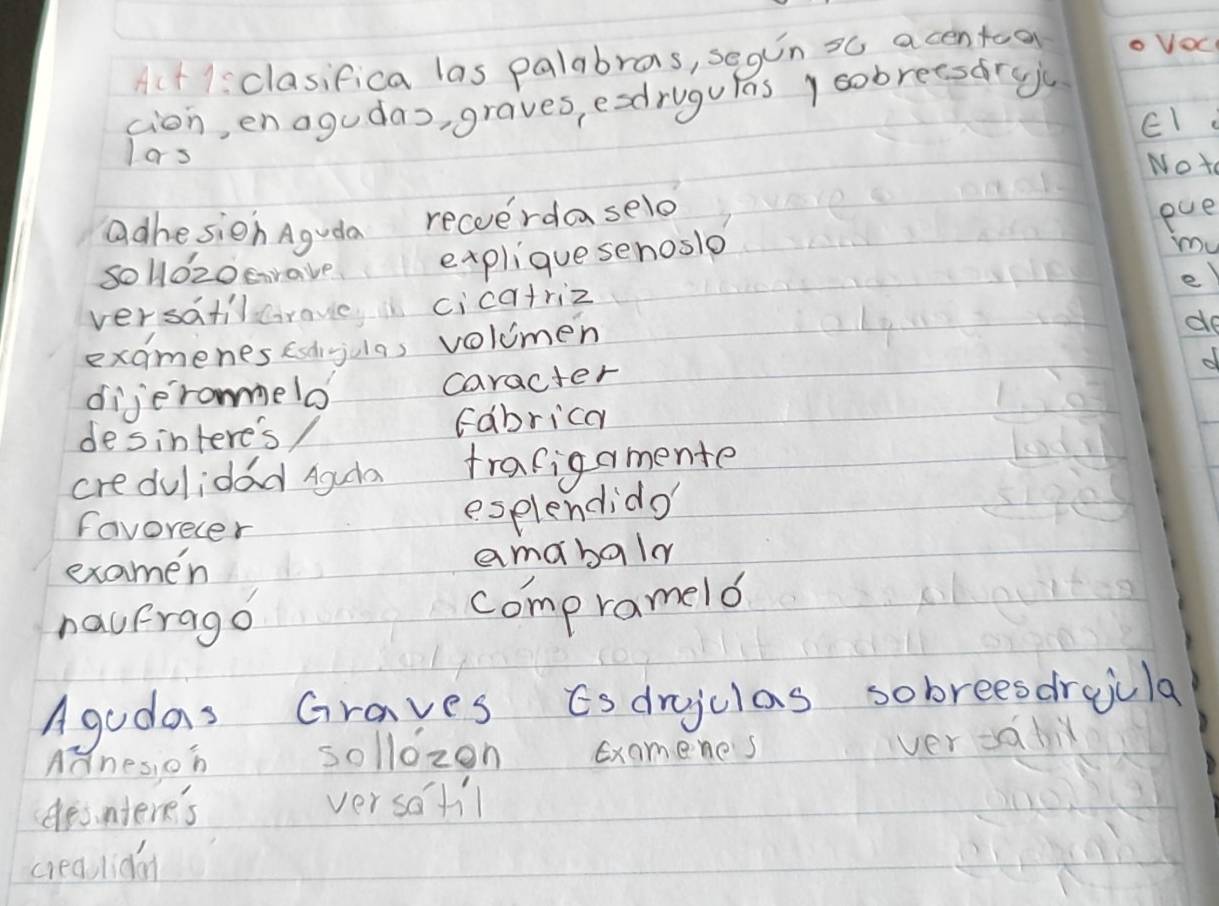 Act 1: clasifica las palabras, según su acentua
ción, en agudas, graves, esdrugulas y sobreesdruju
las
adhesión Aguda recuérdaselo
sollózo Grave expliquesenosló
versátil Grave cicatriz
exámenes Esdrujulas volúmen
dijérommeló caracter
desinterés fábrica
credulidád Aguda trafigamente
favorecer esplendidó
examén amabala
naufragó cómprameló
Agudas Graves Esdrujulas sobreesdrujula
Adhesión sollózon Examenes versátil
desinterés versátil
credulidád
• Voc
El
Not
que
mu
el
de